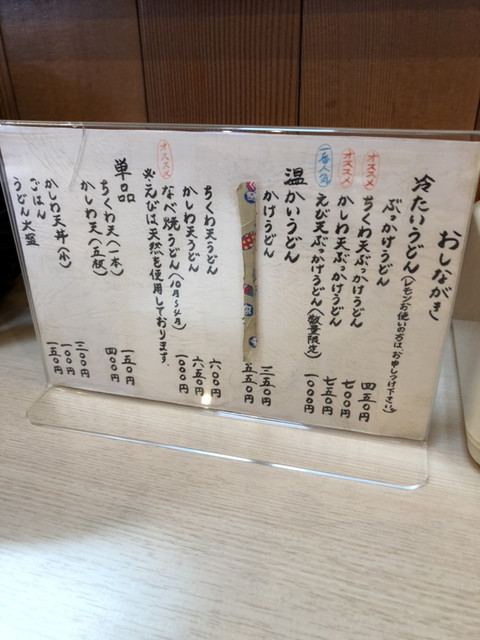 おしながき
冷たいうどん(レモンお使いの方は、お申しつけ下さい。)
ぶっかけうどん 四五〇円
オススメ ちくわ天ぶっかけうどん 七〇〇円
オススメ かしわ天ぶっかけうどん 七五〇円
一番人気 えび天ぶっかけうどん(数量限定) 一〇〇〇円
温かいうどん
かけうどん 三五〇円
五五〇円
ちくわ天うどん 六〇〇円
かしわ天うどん 六五〇円
オススメ なべ焼うどん(10月~4月) 一〇〇〇円
※えびは天然を使用しております。
単品
ちくわ天(一本) 一五〇円
かしわ天(五個) 四〇〇円
かしわ天丼(小) 三〇〇円
ごはん 一〇〇円
うどん大盛 一五〇円